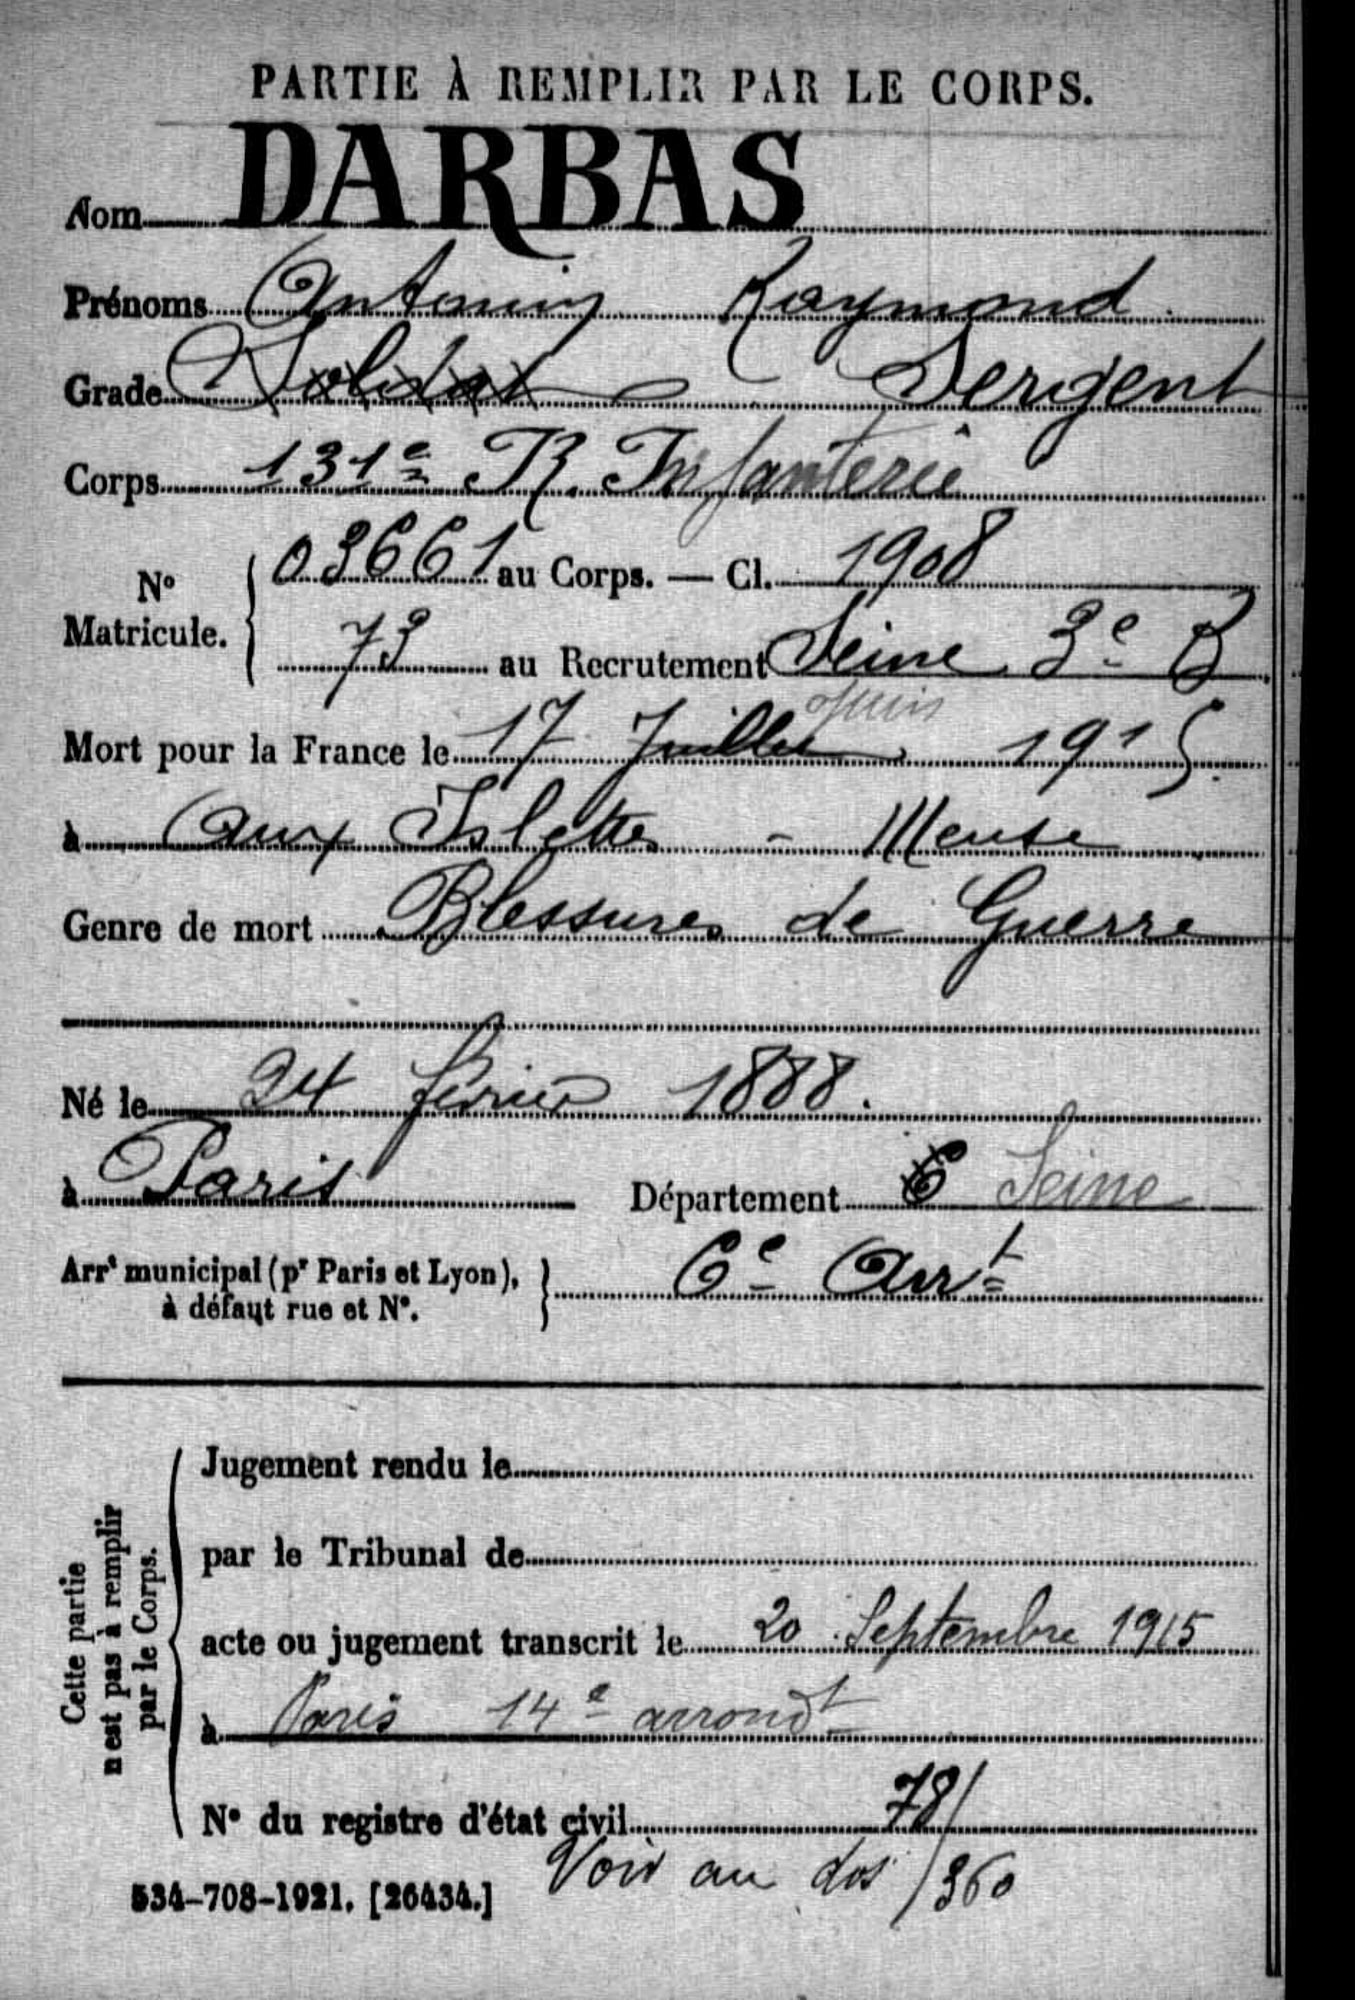 PARTIE À REMPLIR PAR LE CORPS.
Nom DARBAS
Prénoms Antonin Raymond
Grade Soldat Sergent
Corps 131e R. Infanterie
No Matricule. 03661 au Corps. — Cl. 1908
73 au Recrutement Seine 3e B
Juin
Mort pour la France le 17 Juillet 1915.
à aux Islettes - Meuse
Genre de mort Blessures de Guerre
Né le 24 février 1888.
à Paris Département Seine
Arrt municipal (pr Paris et Lyon), à défaut rue et No. 6e Arrt
Cette partie n'est pas à remplir par le Corps.
Jugement rendu le
par le Tribunal de
acte ou jugement transcrit le 20 Septembre 1915
à Paris 14e arrondt
No du registre d'état civil 78/
534-708-1921. [26434.] Voir au dos /360